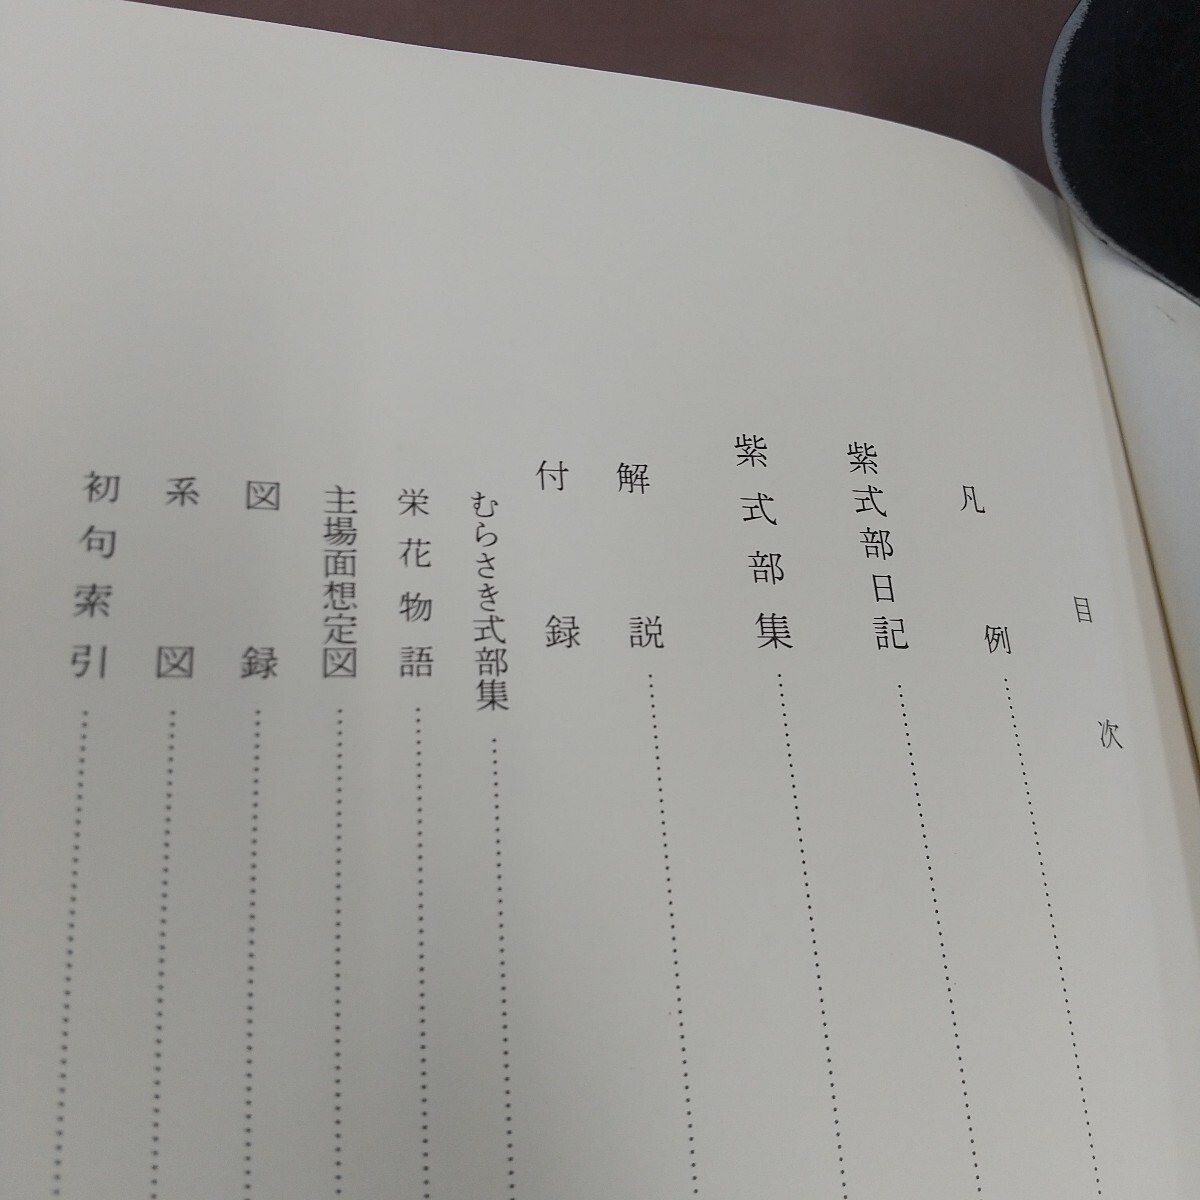 目次
凡例
紫式部日記
紫式部集
解説
付録
むらさき式部集
栄花物語
主場面想定図
図録
系図
初句索引